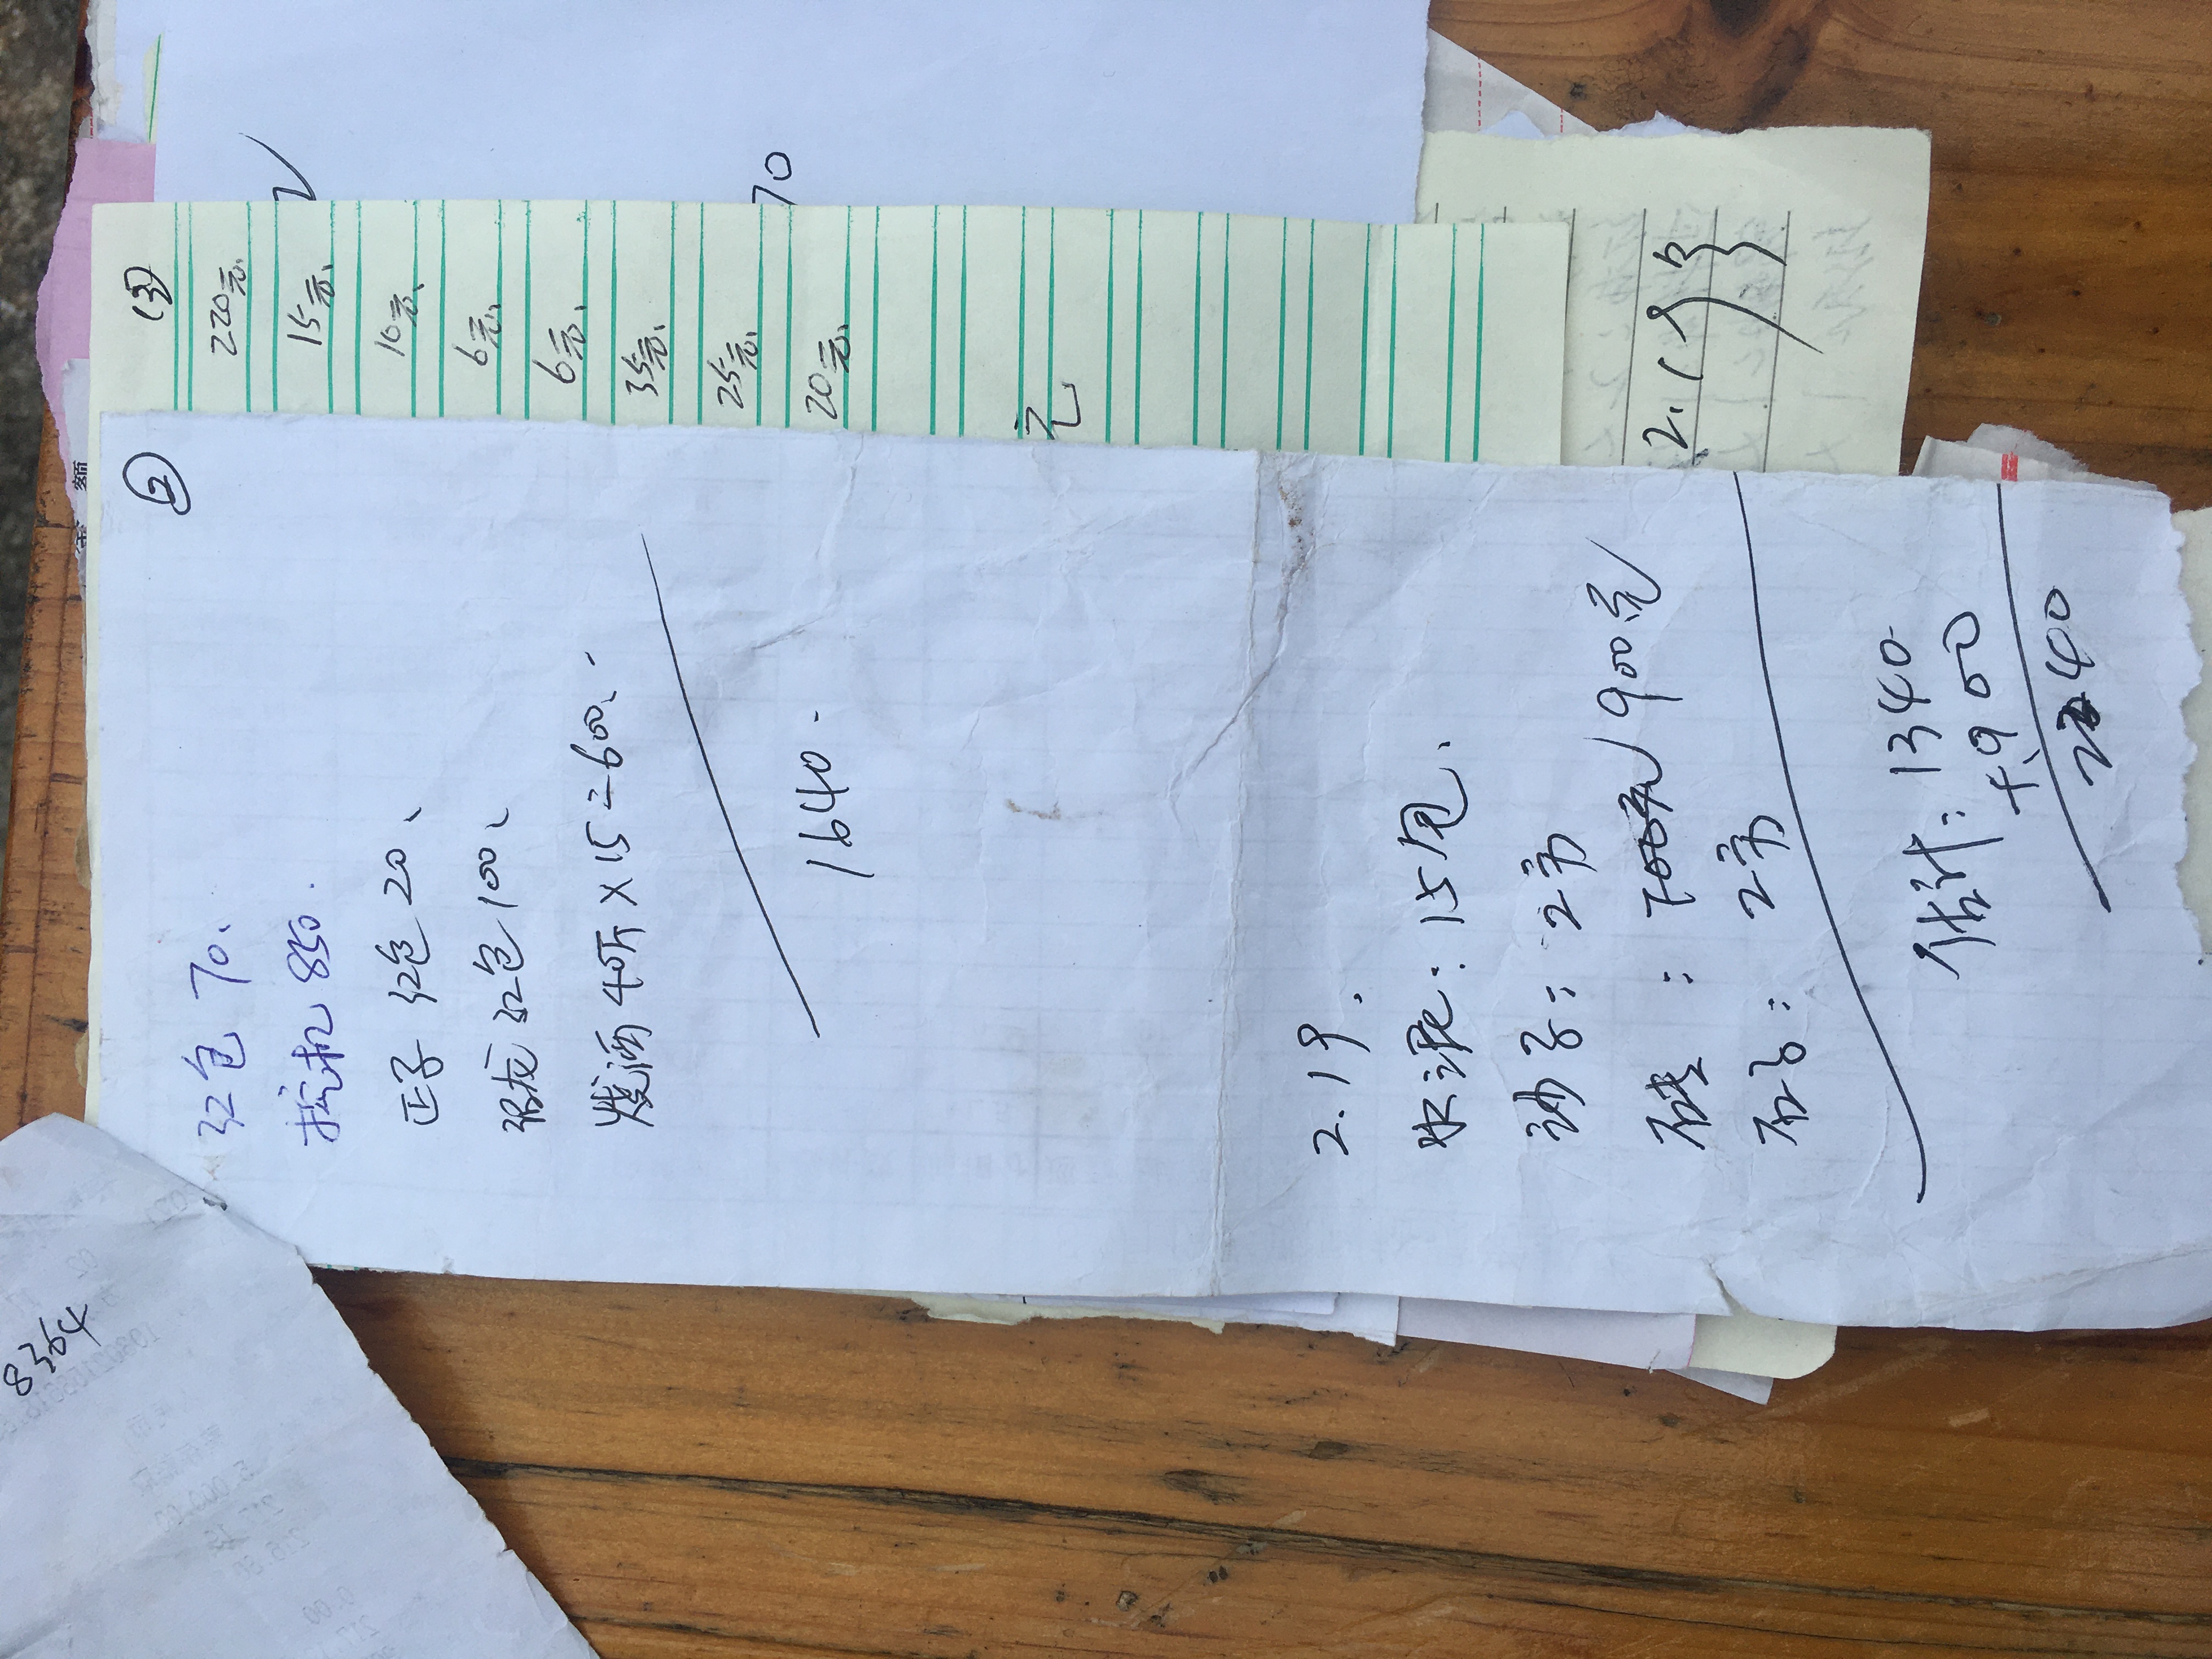 8364
金 额
②
红包 70、
挖机 850.
正子 红包 20、
强龙 红包 100、
烧酒 40斤 × 15 = 600、-
1640.
2.19.
水泥: 15包.
沙子: 2方
石砖 : 700元 900元
石子: 2方
估计: 1340
+900
2240
(3)
220元、
15元、
10元、
6元、
6元、
35元、
25元、
20元、
元
70
2.19号